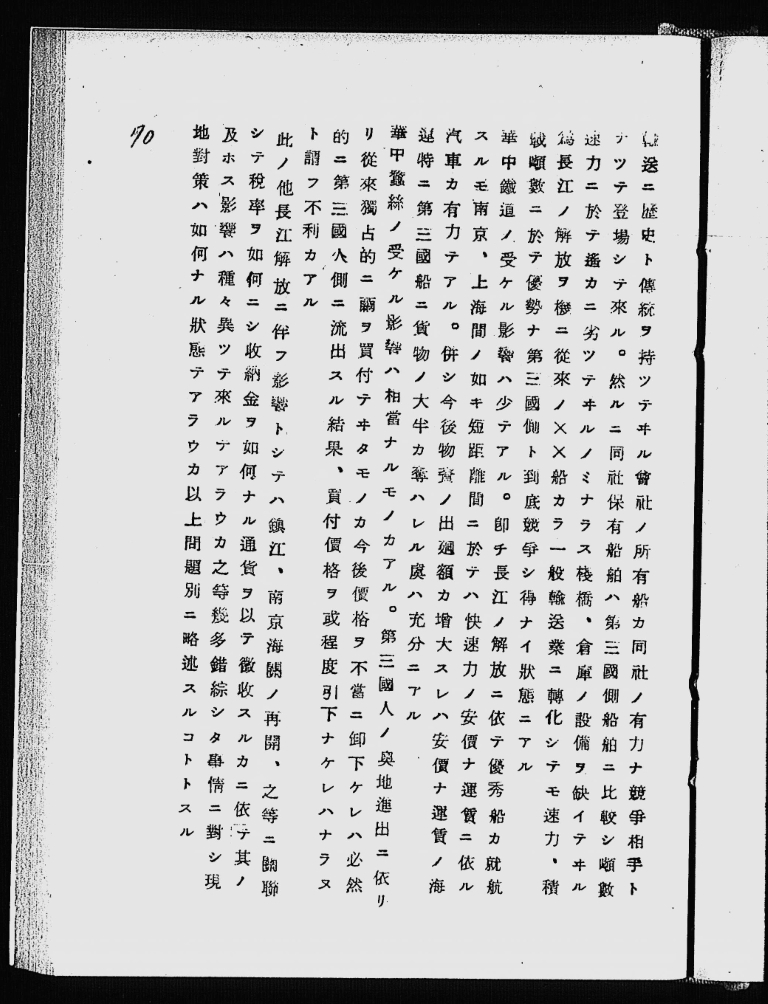 送ニ歴史ト傳統ヲ持ツテヰル會社ノ所有船カ同社ノ有力ナ競爭相手ト
ナツテ登場シテ來ル。然ルニ同社保有船舶ハ第三國側船舶ニ比較シ噸數
速力ニ於テ遙カニ劣ツテヰルノミナラス棧橋、倉庫ノ設備ヲ缺イテヰル
爲長江ノ解放ヲ機ニ從來ノ××船カラ一般輸送業ニ轉化シテモ速力、積
載噸數ニ於テ優勢ナ第三國側ト到底競爭シ得ナイ狀態ニアル
華中鐵道ノ受ケル影響ハ少テアル。卽チ長江ノ解放ニ依テ優秀船カ就航
スルモ南京、上海間ノ如キ短距離間ニ於テハ快速力ノ安價ナ運賃ニ依ル
汽車カ有力テアル。併シ今後物資ノ出廻額カ增大スレハ安價ナ運賃ノ海
運特ニ第三國船ニ貨物ノ大半カ奪ハレル虞ハ充分ニアル
華中蠶絲ノ受ケル影響ハ相當ナルモノカアル。第三國人ノ奥地進出ニ依リ
リ從來獨占的ニ繭ヲ買付テヰタモノカ今後價格ヲ不當ニ卸下ケレハ必然
的ニ第三國人側ニ流出スル結果、買付價格ヲ或程度引下ナケレハナラヌ
ト謂フ不利カアル
此ノ他長江解放ニ伴フ影響トシテハ鎭江、南京海關ノ再開、之等ニ關聯
シテ稅率ヲ如何ニシ收納金ヲ如何ナル通貨ヲ以テ徵收スルカニ依テ其ノ
及ホス影響ハ種々異ツテ來ルテアラウカ之等幾多錯綜シタ事情ニ對シ現
地對策ハ如何ナル狀態テアラウカ以上問題別ニ略述スルコトトスル
70